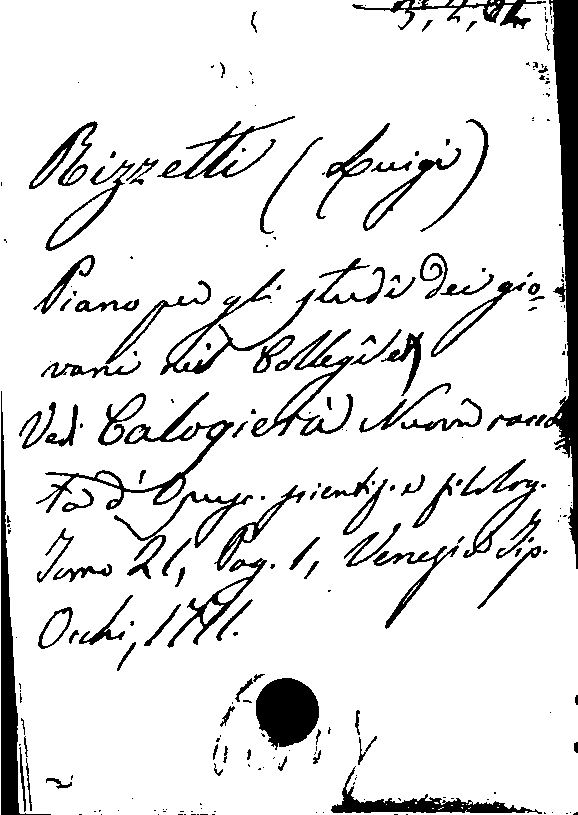 Rizzetti (Luigi)
Piano per gli studî dei gio-
vani nei Collegî etc
Vedi Calogierà Nuova raccol
ta d'Opusc. scientif. e filolog.
Tomo 21, Pag. 1, Venezia Tip.
Occhi, 1771.